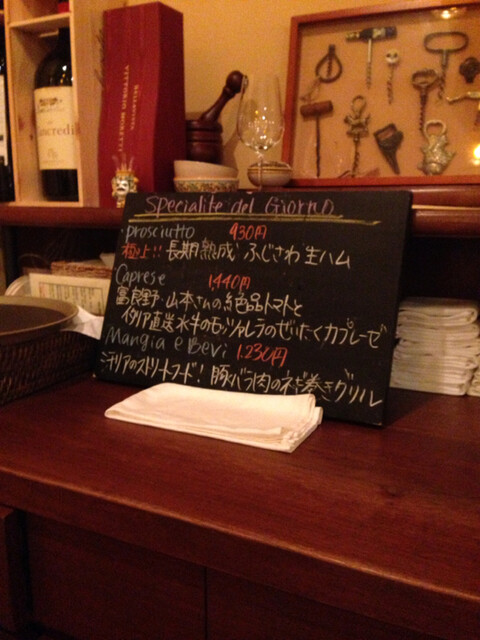 Specialité del Giorno
prosciutto 930円
極上!! 長期熟成 ふじさわ 生ハム
Caprese 1440円
富良野・山本さんの絶品トマトと
イタリア直送水牛のモッツァレラのぜいたくカプレーゼ
Mangia e Bevi 1.230円
シチリアのストリートフード! 豚バラ肉のネギ巻きグリル
VITTORIO MORETTI